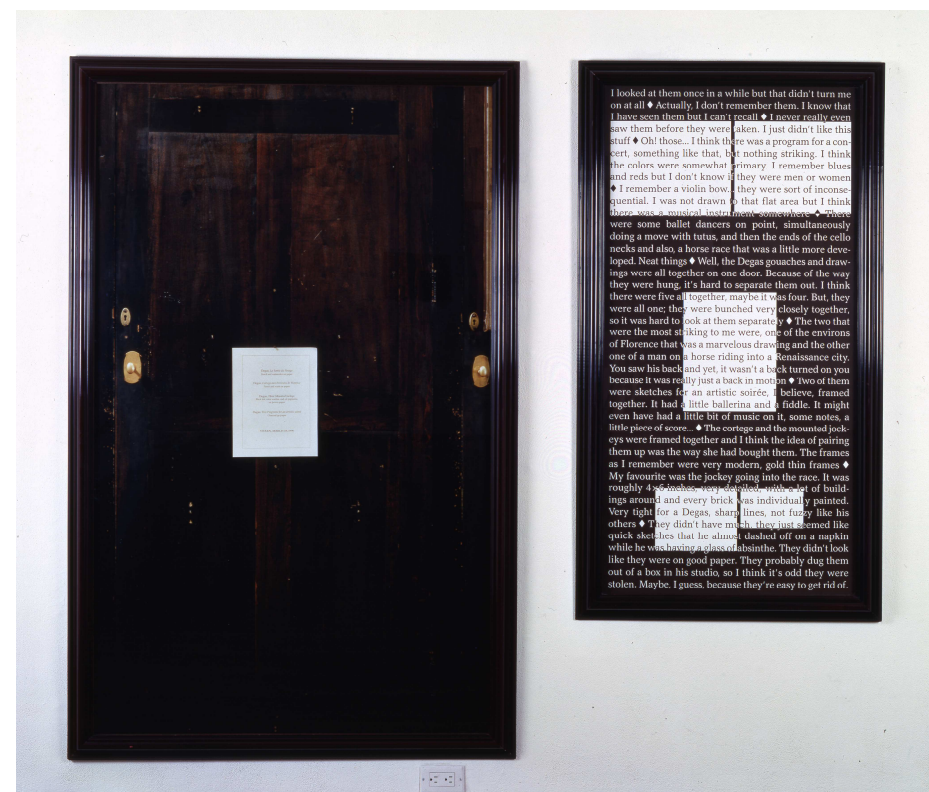 I looked at them once in a while but that didn't turn me
on at all ♦ Actually, I don't remember them. I know that
I have seen them but I can't recall ♦ I never really even
saw them before they were taken. I just didn't like this
stuff ♦ Oh! those... I think there was a program for a con-
cert, something like that, but nothing striking. I think
the colors were somewhat primary. I remember blues
and reds but I don't know if they were men or women
♦ I remember a violin bow.. they were sort of inconse-
quential. I was not drawn to that flat area but I think
there was a musical instrument somewhere ♦ There
were some ballet dancers on point, simultaneously
doing a move with tutus, and then the ends of the cello
necks and also, a horse race that was a little more deve-
loped. Neat things ♦ Well, the Degas gouaches and draw-
ings were all together on one door. Because of the way
they were hung, it's hard to separate them out. I think
there were five all together, maybe it was four. But, they
were all one; they were bunched very closely together,
so it was hard to look at them separately ♦ The two that
were the most striking to me were, one of the environs
of Florence that was a marvelous drawing and the other
one of a man on a horse riding into a Renaissance city.
You saw his back and yet, it wasn't a back turned on you
because it was really just a back in motion ♦ Two of them
were sketches for an artistic soirée, I believe, framed
together. It had a little ballerina and a fiddle. It might
even have had a little bit of music on it, some notes, a
little piece of score... ♦ The cortege and the mounted jock-
eys were framed together and I think the idea of pairing
them up was the way she had bought them. The frames
as I remember were very modern, gold thin frames ♦
My favourite was the jockey going into the race. It was
roughly 4×6 inches, very detailed, with a lot of build-
ings around and every brick was individually painted.
Very tight for a Degas, sharp lines, not fuzzy like his
others ♦ They didn't have much, they just seemed like
quick sketches that he almost dashed off on a napkin
while he was having a glass of absinthe. They didn't look
like they were on good paper. They probably dug them
out of a box in his studio, so I think it's odd they were
stolen. Maybe, I guess, because they're easy to get rid of.